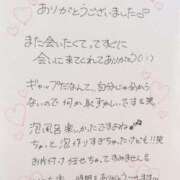 ありがとうございました♪
また会いたくてってすぐに
会いに来てくれてありがとう(^^)
ギャップだなんて、自分じゃ分から
ないので何か恥ずかしいですね笑
泡風呂楽しかたですよね♡
ちょっと、泡作りすぎちゃったケド!!笑
お片付け任せちゃってすみません